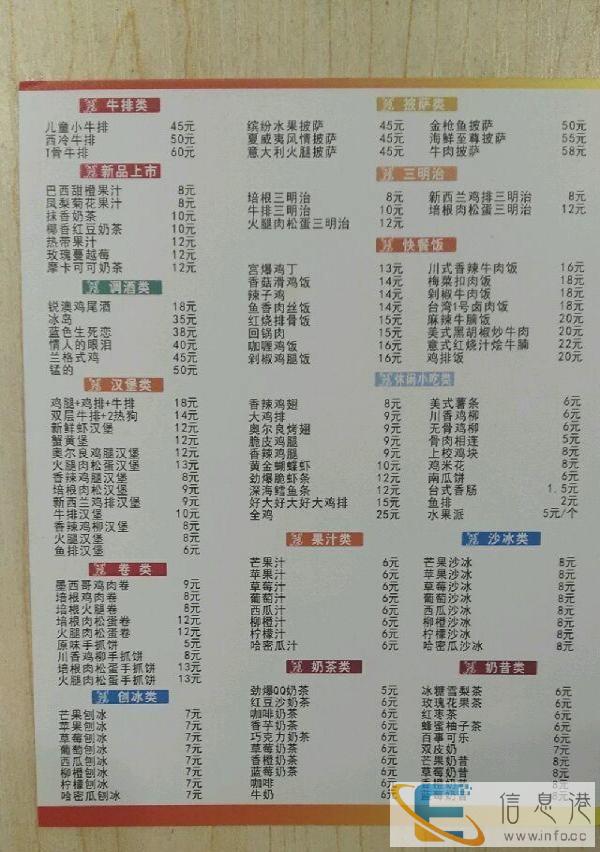 牛排类
儿童小牛排 45元
西冷牛排 50元
T骨牛排 60元
新品上市
巴西甜橙果汁 8元
凤梨菊花果汁 8元
抹香奶茶 10元
椰香红豆奶茶 10元
热带果汁 12元
玫瑰蔓越莓 12元
摩卡可可奶茶 12元
调酒类
锐澳鸡尾酒 18元
冰岛 35元
蓝色生死恋 38元
情人的眼泪 40元
兰格式鸡 45元
锰的 50元
汉堡类
鸡腿+鸡排+牛排 18元
双层牛排+2热狗 14元
新鲜虾汉堡 12元
蟹黄堡 12元
奥尔良鸡腿汉堡 12元
火腿肉松蛋汉堡 13元
香辣鸡腿汉堡 8元
培根肉松汉堡 9元
新西兰鸡排汉堡 9元
牛排汉堡 10元
香辣鸡柳汉堡 8元
火腿汉堡 8元
鱼排汉堡 6元
卷类
墨西哥鸡肉卷 9元
培根鸡肉卷 8元
培根火腿卷 8元
培根肉松蛋卷 12元
火腿肉松蛋卷 12元
原味手抓饼 5元
川香鸡柳手抓饼 8元
培根肉松蛋手抓饼 13元
火腿肉松蛋手抓饼 13元
刨冰类
芒果刨冰 7元
苹果刨冰 7元
草莓刨冰 7元
葡萄刨冰 7元
西瓜刨冰 7元
柳橙刨冰 7元
柠檬刨冰 7元
哈密瓜刨冰 7元
披萨类
缤纷水果披萨 45元 金枪鱼披萨 50元
夏威夷风情披萨 45元 海鲜至尊披萨 55元
意大利火腿披萨 45元 牛肉披萨 58元
三明治
培根三明治 8元 新西兰鸡排三明治 8元
牛排三明治 10元 培根肉松蛋三明治 12元
火腿肉松蛋三明治 12元
快餐饭
宫爆鸡丁 13元 川式香辣牛肉饭 16元
香菇滑鸡饭 14元 梅菜扣肉饭 18元
辣子鸡 14元 剁椒牛肉饭 18元
鱼香肉丝饭 14元 台湾1号卤肉饭 18元
红烧排骨饭 15元 麻辣牛腩饭 20元
回锅肉 15元 美式黑胡椒炒牛肉 20元
咖喱鸡饭 16元 意式红烧汁烩牛腩 22元
剁椒鸡腿饭 16元 鸡排饭 20元
休闲小吃类
香辣鸡翅 8元 美式薯条 6元
大鸡排 9元 川香鸡柳 6元
奥尔良烤翅 9元 无骨鸡柳 6元
脆皮鸡腿 9元 骨肉相连 5元
香辣鸡腿 9元 上校鸡块 8元
黄金蝴蝶虾 10元 鸡米花 8元
劲爆脆脆虾 12元 南瓜饼 6元
深海鳕鱼条 12元 台式香肠 1.5元
好大好大好大鸡排 15元 鱼排 2元
全鸡 25元 水果派 5元/个
果汁类
芒果汁 6元
苹果汁 6元
草莓汁 6元
葡萄汁 6元
西瓜汁 6元
柳橙汁 6元
柠檬汁 6元
哈密瓜汁 6元
沙冰类
芒果沙冰 8元
苹果沙冰 8元
草莓沙冰 8元
葡萄沙冰 8元
西瓜沙冰 8元
柳橙沙冰 8元
柠檬沙冰 8元
哈密瓜沙冰 8元
奶茶类
劲爆QQ奶茶 5元
红豆沙奶茶 6元
咖啡奶茶 6元
香芋奶茶 6元
巧克力奶茶 6元
草莓奶茶 6元
香橙奶茶 6元
蓝莓奶茶 6元
咖啡 6元
牛奶 6元
奶昔类
冰糖雪梨茶 6元
玫瑰花果茶 6元
红枣茶 6元
蜂蜜柚子茶 6元
百事可乐 6元
双皮奶 7元
芒果奶昔 8元
草莓奶昔 8元
香橙奶昔
蓝莓奶昔
信息港
www.info.cc